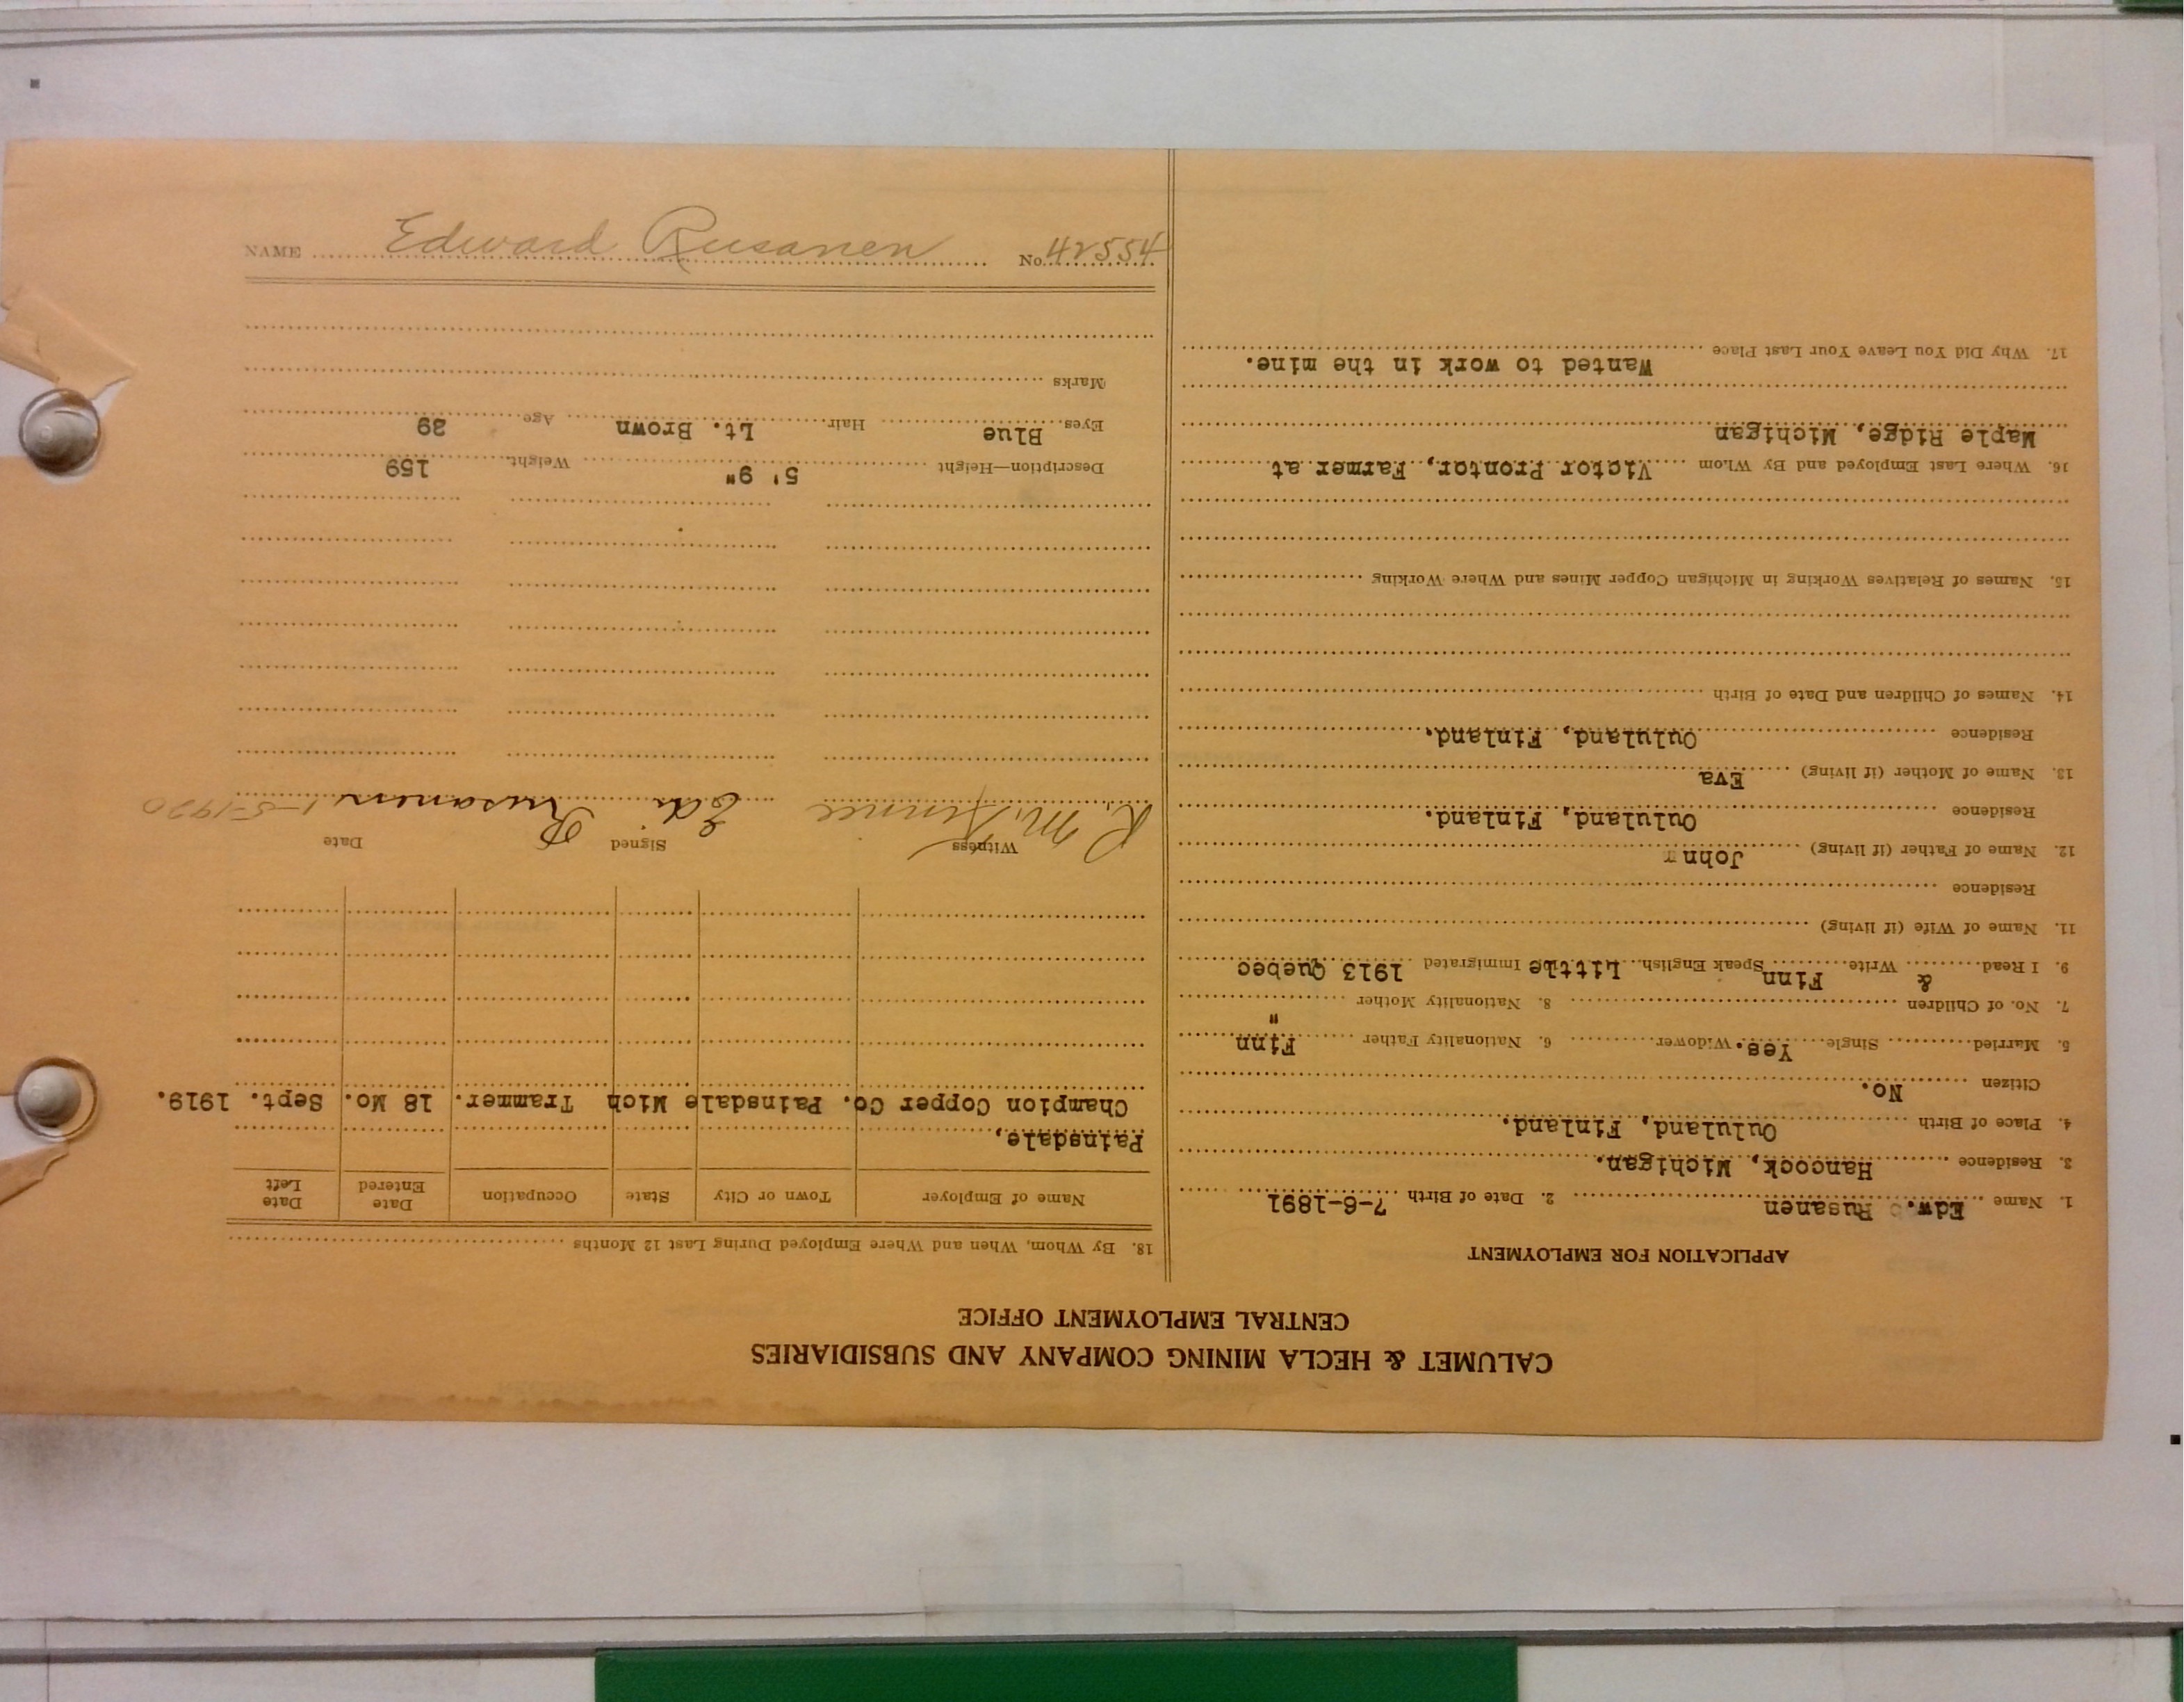 CALUMET & HECLA MINING COMPANY AND SUBSIDIARIES
CENTRAL EMPLOYMENT OFFICE
APPLICATION FOR EMPLOYMENT
1. Name Edw. Rusanen 2. Date of Birth 7-6-1891
3. Residence Hancock, Michigan.
4. Place of Birth Oululand, Finland.
Citizen No.
5. Married Single Yes. Widower 6. Nationality Father Finn
7. No. of Children 8. Nationality Mother "
9. I Read & Write Finn Speak English Little Immigrated 1913 Quebec
11. Name of Wife (if living)
Residence
12. Name of Father (if living) John
Residence Oululand, Finland.
13. Name of Mother (if living) Eva
Residence Oululand, Finland.
14. Names of Children and Date of Birth
15. Names of Relatives Working in Michigan Copper Mines and Where Working
16. Where Last Employed and By Whom Victor Prontor, Farmer at
Maple Ridge, Michigan
17. Why Did You Leave Your Last Place Wanted to work in the mine.
18. By Whom, When and Where Employed During Last 12 Months
Name of Employer Town or City State Occupation Date Entered Date Left
Painsdale,
Champion Copper Co. Painsdale Mich Trammer. 18 Mo. Sept. 1919.
Witness Signed Date
R. M. Ed. Rusanen 1-5-1920
Description—Height 5' 9" Weight 159
Eyes Blue Hair Lt. Brown Age 29
Marks
NAME Edward Rusanen No. 42554